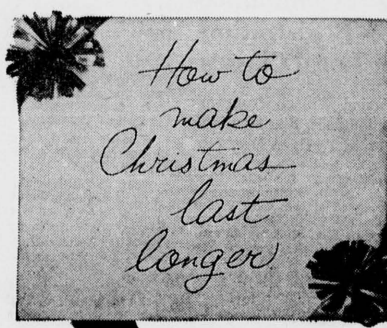 How to
make
Christmas
last
longer